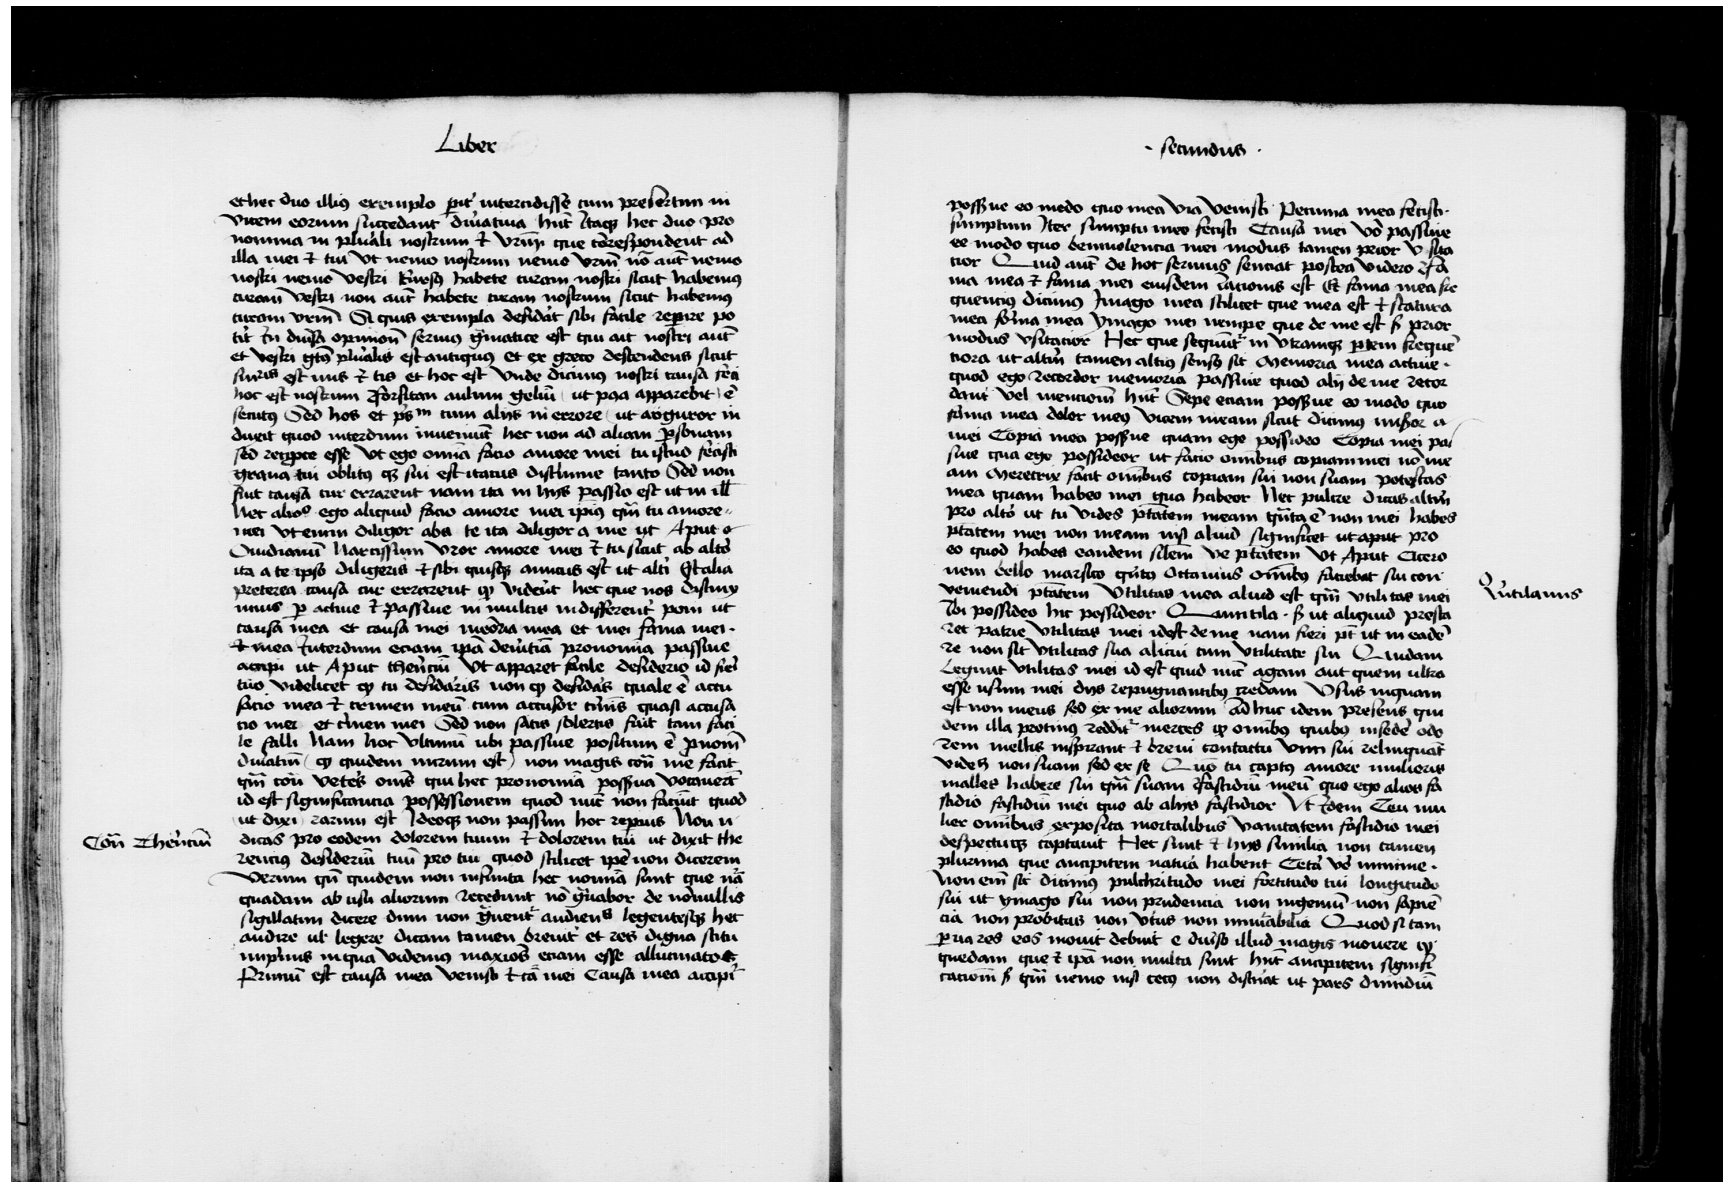 Liber
et hec duo illius exemplo perit intercidisse cum presertim in
vicem eorum succedant diriuatiua hnt Itaqꝫ hec duo pro
nomina in plurali nostrum et vrm que correspondent ad
illa mei et tui ut nemo nostrum nemo vrm nō aut nemo
nostri nemo vestri Rursus habete curam nostri sicut habemus
curam vestri non aut habete curam nostrum sicut habemus
curam vrm Si quis exempla desiderat sibi facile reperire po
tit In diuersa opinione seruius gramatice est qui ait nostri aut
et vestri gtus pluralis est antiquus et ex greco descendens sicut
est mis et tis et hoc est Unde dicimus nostri causa feci
hoc est nostrum Forsitan aulum gelium ut postea apparebit ē
secutus Sed hos et cum alijs in errore ut auguror in
duxit quod interdum inueniunt hec non ad aliam personam
sed reciproce esse Ut ego omnia facio amore mei tu istud fecisti
gracia tui oblitus qꝫ sui est itacus discrimine tanto Sed non
fuit causa cur errarent nam ita in hijs passio est ut in ill
Nec alios ego aliquid facio amore mei ipius qm tu amore
mei ut enim diligor abs te ita diligor a me ut Aput o
Ouidianum Narcissum uror amore mei et tu sicut ab alto
ita a te ipso diligeris et sibi quisqꝫ amicus est ut alti Et alia
preterea causa cur errarent qp viderūt hec que nos distinx
imus per actiue et passiue in multis indifferenter poni ut
causa mea et causa mei memoria mea et mei fama mei
et mea Interdum eciam ipa deriuatiua pronomina passiue
accipi ut Aput therenciū Ut apparet facile desiderio id fieri
tuo videlicet qp tu desideraris non qp desideras quale ē actu
satio mea et crimen meū cum accusor criminis quasi accusa
tio mei et crimen mei Sed non satis solertis fuit tam faci
le falli Nam hoc ultimum ubi passiue positum ē pronomen
diriuatiuū qp quidem mirum est non magis contra me facit
qm contra veteres omnes qui hec pronomina possessiua vocauerūt
id est significancia possessionem quod nunc non faciunt quod
ut dixi rarum est Ideoqꝫ non passim hoc reperies Non n
dicas pro eodem dolorem tuum et dolorem tui ut dixit the
rencius desiderium tuum pro tui quod scilicet ipse non dicerem
Verum qm quidem non infinita hec nomina sunt que nam
quadam ab usu aliorum recedunt nō grauabor de nonnullis
sigillatim dicere dum non grauent audiens legentesqꝫ hec
audire uel legere dicam tamen breuiter et res digna scitu
in qua videmus maximos eciam esse allucinatos
Primum est causa mea venisti et cā mei Causa mea accipitur
Contra Therencium
secundus
possessiue eo modo quo mea via venisti Pecunia mea fecisti
sumptum Iter sumptu meo fecisti Causa mei vero passiue
ee modo quo beniuolencia mei modus tamen prior usita
cior Quid aut de hoc seruius senciat postea videro Fa
ma mea et fama mei eiusdem racionis est Et fama mea fre
quencius dicimus Imago mea scilicet que mea est et statura
mea forma mea ymago mei nempe que de me est sed prior
modus usitatior Hec que sequuntur in utramqꝫ partem frequen
tiora ut altm tamen altius sensus sit Memoria mea actiue
quod ego recordor memoria passiue quod alij de me recor
dant vel mencionem hnt Sepe eciam possessiue eo modo quo
forma mea dolor meus vicem meam sicut dicimus misereor a
mei Copia mea possessiue quam ego possideo Copia mei pas
siue qua ego possideor ut facio omnibus copiam mei nō me
am Meretrix facit omnibus copiam sui non suam potestas
mea quam habeo mei qua habeor Nec pulcre dicas altm
pro alto ut tu vides ptatem meam quanta ē non mei habes
ptatem mei non meam nisi aliud significet ut aput pro
eo quod habes eandem silem ue ptatem Ut Aput Cicero
nem bello marsico quintus Octauius omnibus faciebat sui con
ueniendi ptatem Utilitas mea aliud est qm utilitas mei
Ibi possideo hic possideor Quintila sed ut aliquid presta
ret patrie utilitas mei idest de me nam fieri pt ut in eadem
re non sit utilitas sua alicui cum utilitate sui Quidam
legunt utilitas mei id est quid nunc agam aut quem ultra
esse usum mei dijs repugnantibus credam Usus inquam
est non meus sed ex me aliorum Ad huc idem presens qui
dem illa protinus redditur merces qp omnibus quibus insedere odo
rem mellis inspirant et breui contactu vim sui relinquant
videlicet non suam sed ex se Quo tu captus amore mulieris
malles habere sui qm suam Fastidium meum quo ego alios fa
stidio fastidium mei quo ab alijs fastidior Ut Idem Ceu mu
lier omnibus exposita mortalibus vanitatem fastidio mei
despectuqꝫ captauit Hec sunt et hijs similia non tamen
plurima que ancipitem naturam habent Cetera vero minime
Non enim sic dicimus pulchritudo mei fortitudo tui longitudo
sui ut ymago sui non prudencia non ingenium non sapien
cia non probitas non virtus non mirabilia Quod si tam
paria res eos mouit debuit e diuerso illud magis mouere qp
quedam que et ipa non multa sunt hnt ancipitem signifi
cationem sed qm nemo nisi cecus non discernat ut pars dimidium
Quintilianus